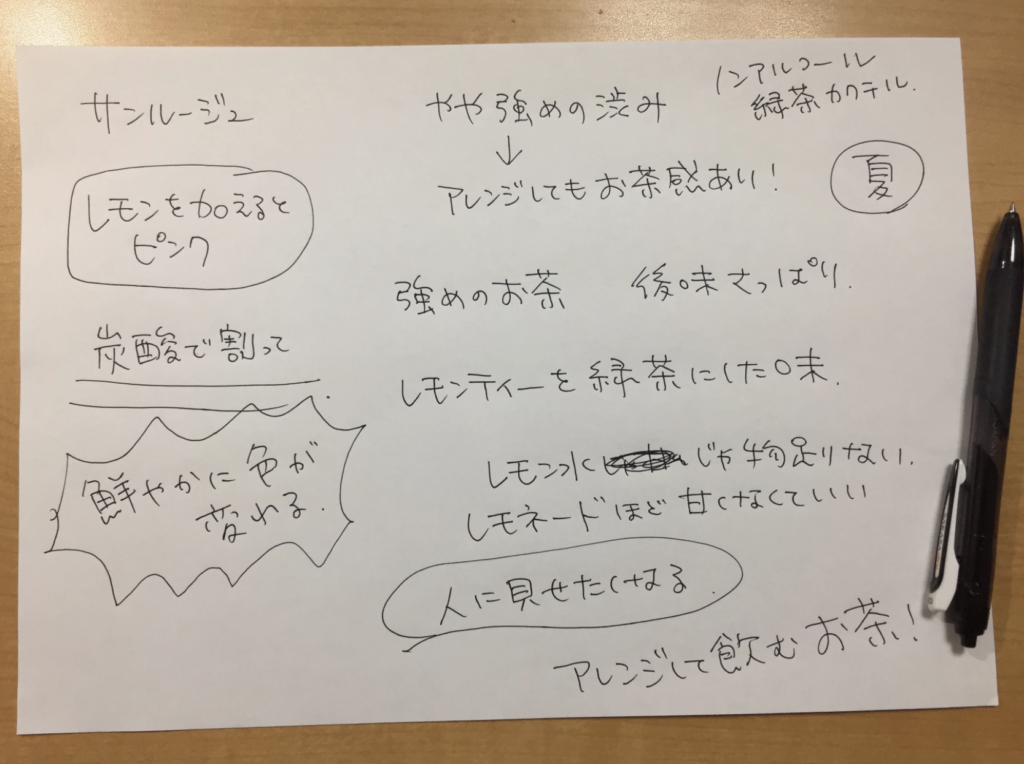 サンルージュ
レモンを加えると
ピンク
炭酸で割って
鮮やかに色が
変わる.
やや強めの渋み
↓
アレンジしてもお茶感あり!
ノンアルコール
緑茶カクテル.
夏
強めのお茶 後味さっぱり.
レモンティーを緑茶にした味.
レモン水じゃ物足りない.
レモネードほど甘くなくていい
人に見せたくなる.
アレンジして飲むお茶!